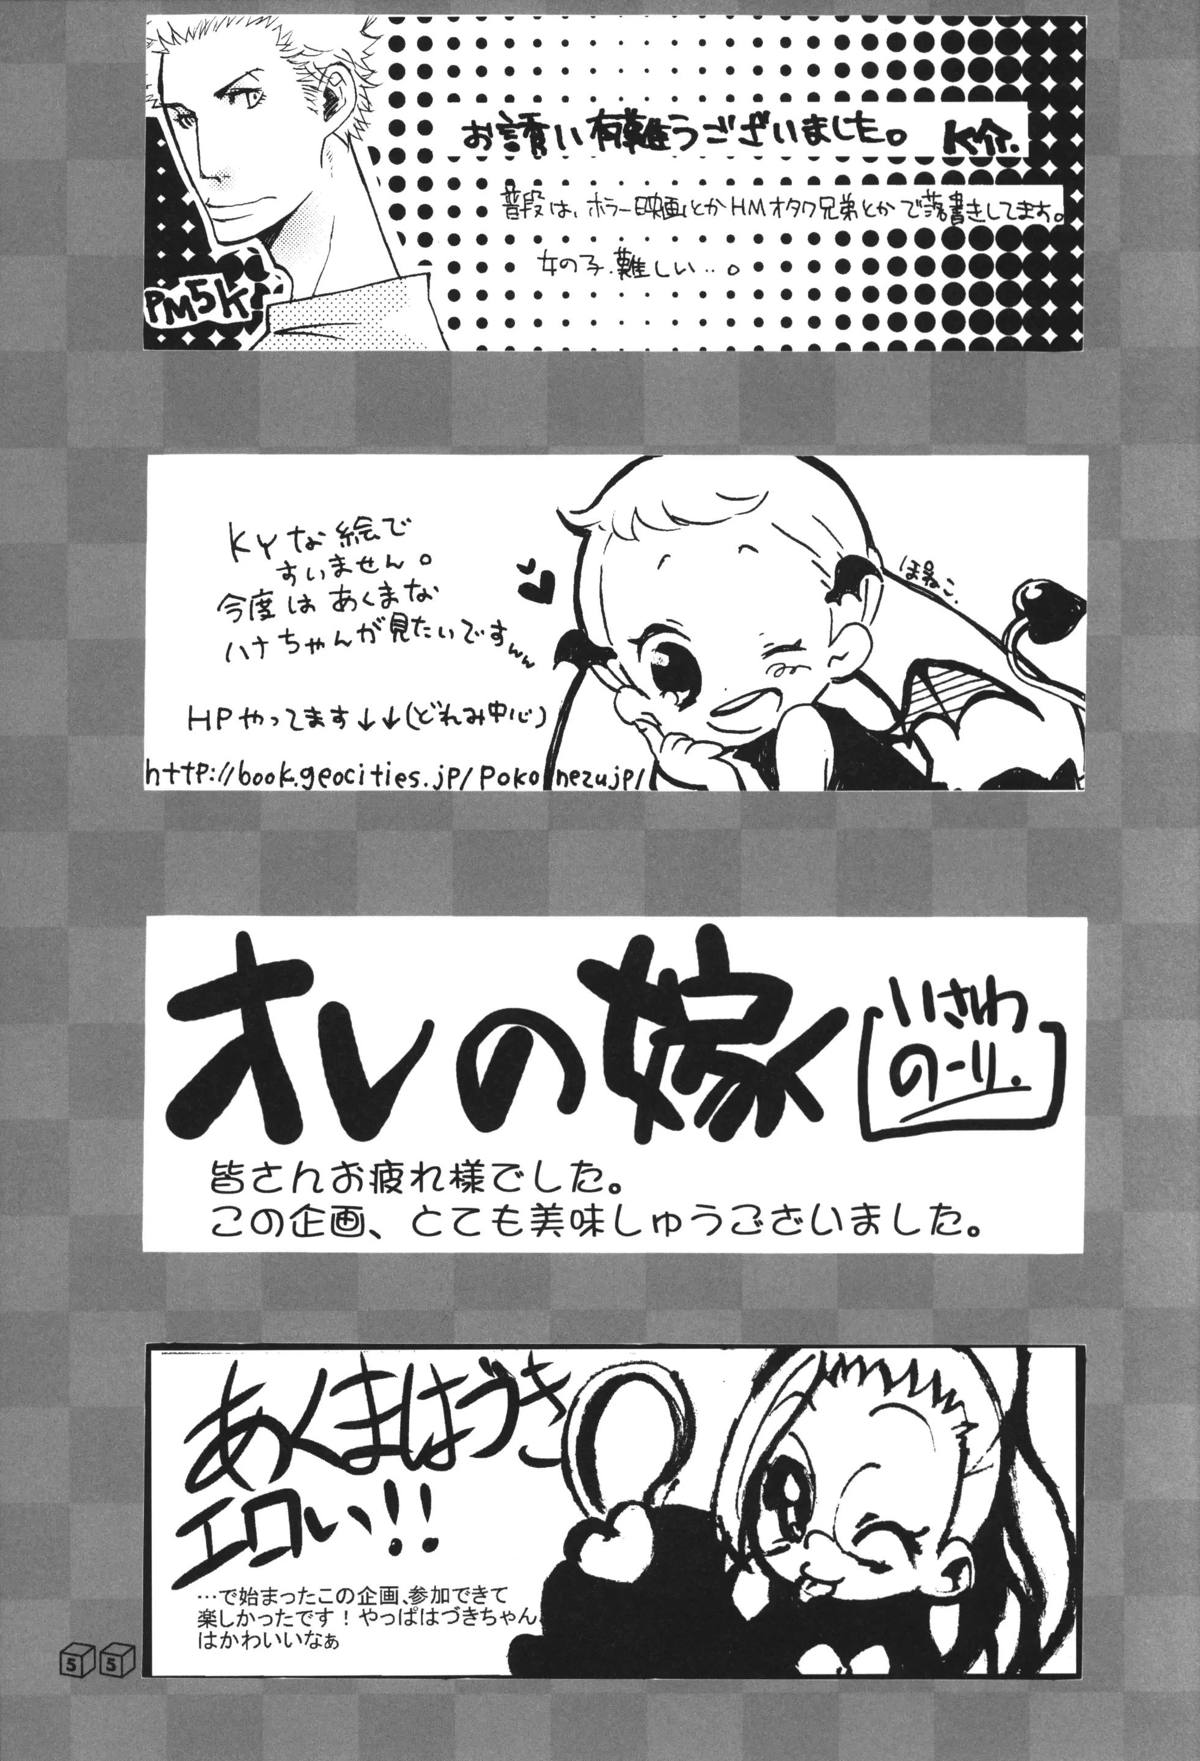 お誘い有難うございました。 K介.
普段は、ホラー映画とかHMオタク兄弟とかで落書きしてます。
女の子.難しい‥。
PM5K!
KYな絵で
すいません。
今度はあくまな
ハナちゃんが見たいですww
ほねこ.
HPやってます↓↓(どれみ中心)
http://book.geocities.jp/poko_nezujp/
オレの嫁
いさわ
のーり.
皆さんお疲れ様でした。
この企画、とても美味しゅうございました。
あくまはづき
エロい!!
…で始まったこの企画、参加できて
楽しかったです！やっぱはづきちゃん
はかわいいなぁ
55